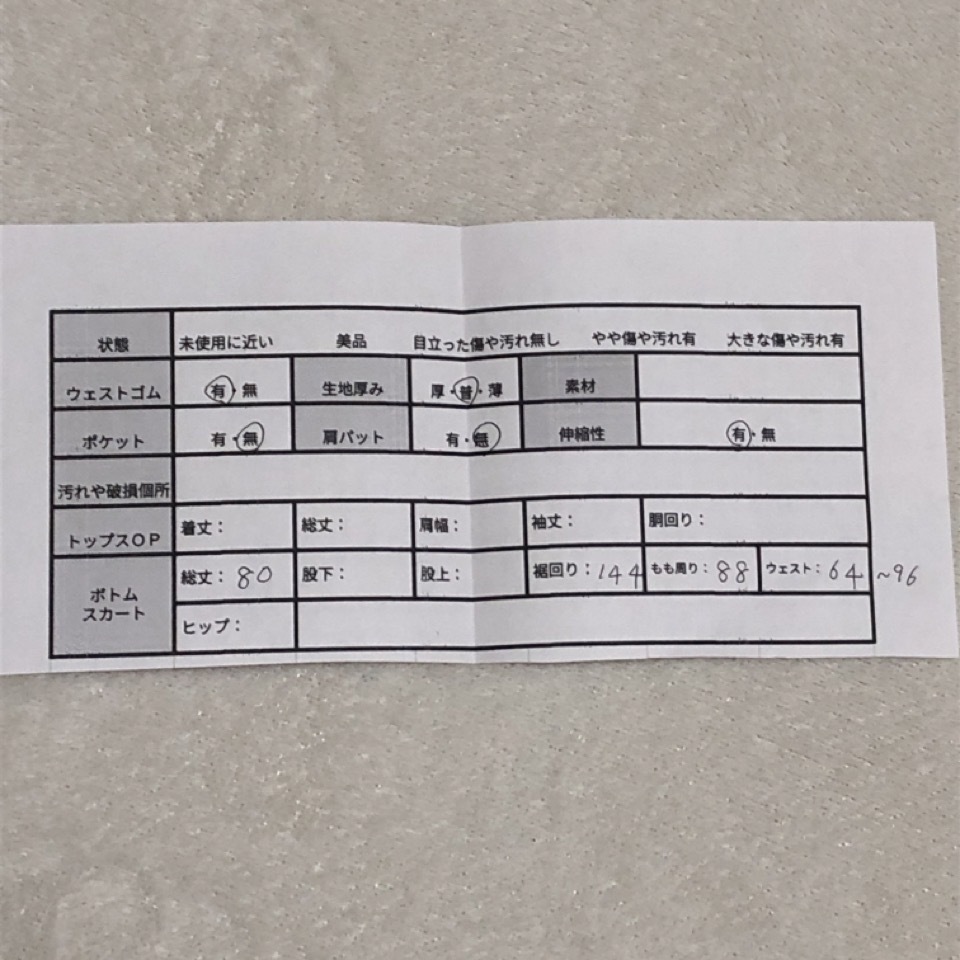 状態 未使用に近い 美品 目立った傷や汚れ無し やや傷や汚れ有 大きな傷や汚れ有
ウェストゴム 有・無 生地厚み 厚・普・薄 素材
ポケット 有・無 肩パット 有・無 伸縮性 有・無
汚れや破損個所
トップスOP 着丈: 総丈: 肩幅: 袖丈: 胴回り:
ボトム
スカート
総丈: 80 股下: 股上: 裾回り: 144 もも周り: 88 ウェスト: 64~96
ヒップ: